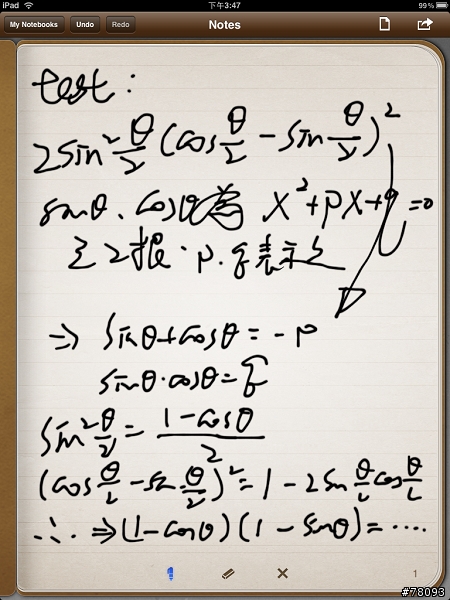 iPad 下午3:47 99%
My Notebooks Undo Redo Notes
test:
2sin²θ/2(cosθ/2 - sinθ/2)²
sinθ、cosθ為 x²+px+q=0
之2根,p.q表示之
⇒ sinθ+cosθ=-p
sinθ·cosθ=q
sin²θ/2=(1-cosθ)/2
(cosθ/2-sinθ/2)²=1-2sinθ/2cosθ/2
∴⇒(1-cosθ)(1-sinθ)=....
1
#78093